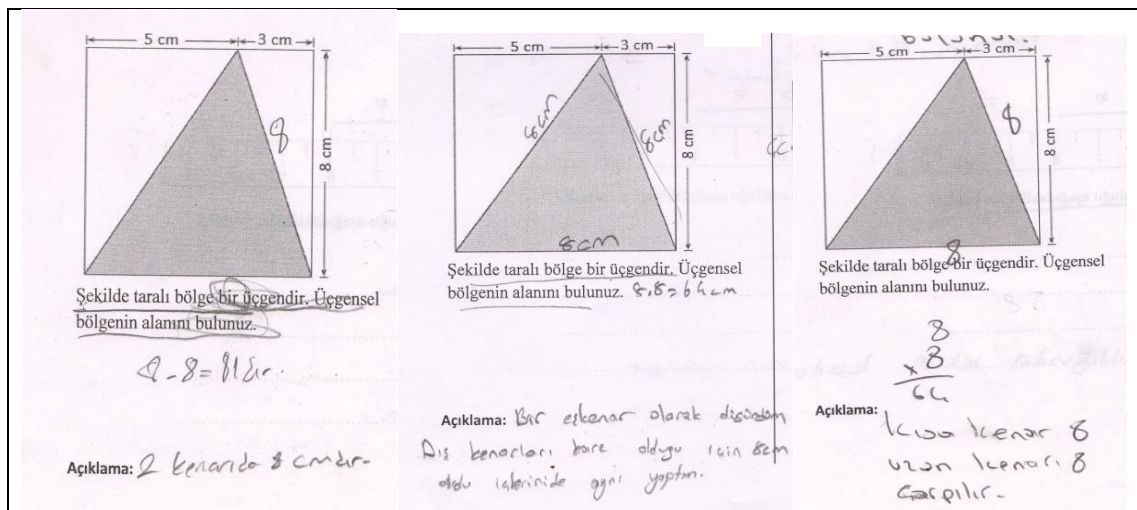 5 cm
3 cm
8
8 cm
Şekilde taralı bölge bir üçgendir. Üçgensel
bölgenin alanını bulunuz.
Açıklama: 2 kenarıda 8 cmdir.
5 cm
3 cm
8cm
8cm
8 cm
8cm
Şekilde taralı bölge bir üçgendir. Üçgensel
bölgenin alanını bulunuz. 8.8=64 cm
Açıklama: Bir eşkenar olarak düşündüm
Dış kenarları kare olduğu için 8cm
oldu içlerinide aynı yaptım.
5 cm
3 cm
8
8 cm
8
Şekilde taralı bölge bir üçgendir. Üçgensel
bölgenin alanını bulunuz.
8
x 8
64
Açıklama:
Kısa kenar 8
uzun kenarı 8
çarpılır.